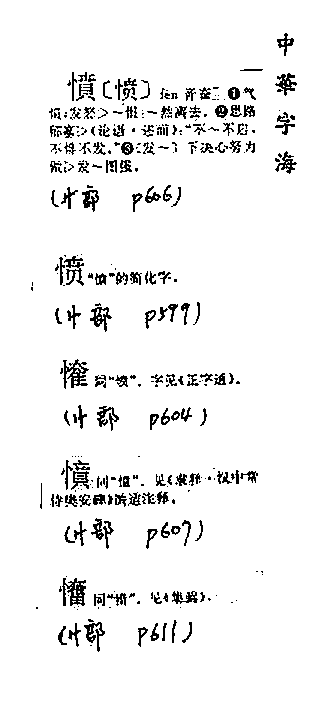 中華字海
憤〔愤〕fèn 音奋 ❶气
愤；发怒＞～恨｜～然离去。❷思路
郁塞＞《论语·述而》：“不～不启，
不悱不发。”❸〔发～〕下决心努力
做＞发～图强。
(忄部 p606)
愤 “憤”的简化字。
(忄部 p599)
同“憤”。字见《正字通》。
(忄部 p604)
同“憤”。见《隶释·汉中常
侍樊安碑》洪适注释。
(忄部 p607)
同“憤”。见《集韵》。
(忄部 p611)